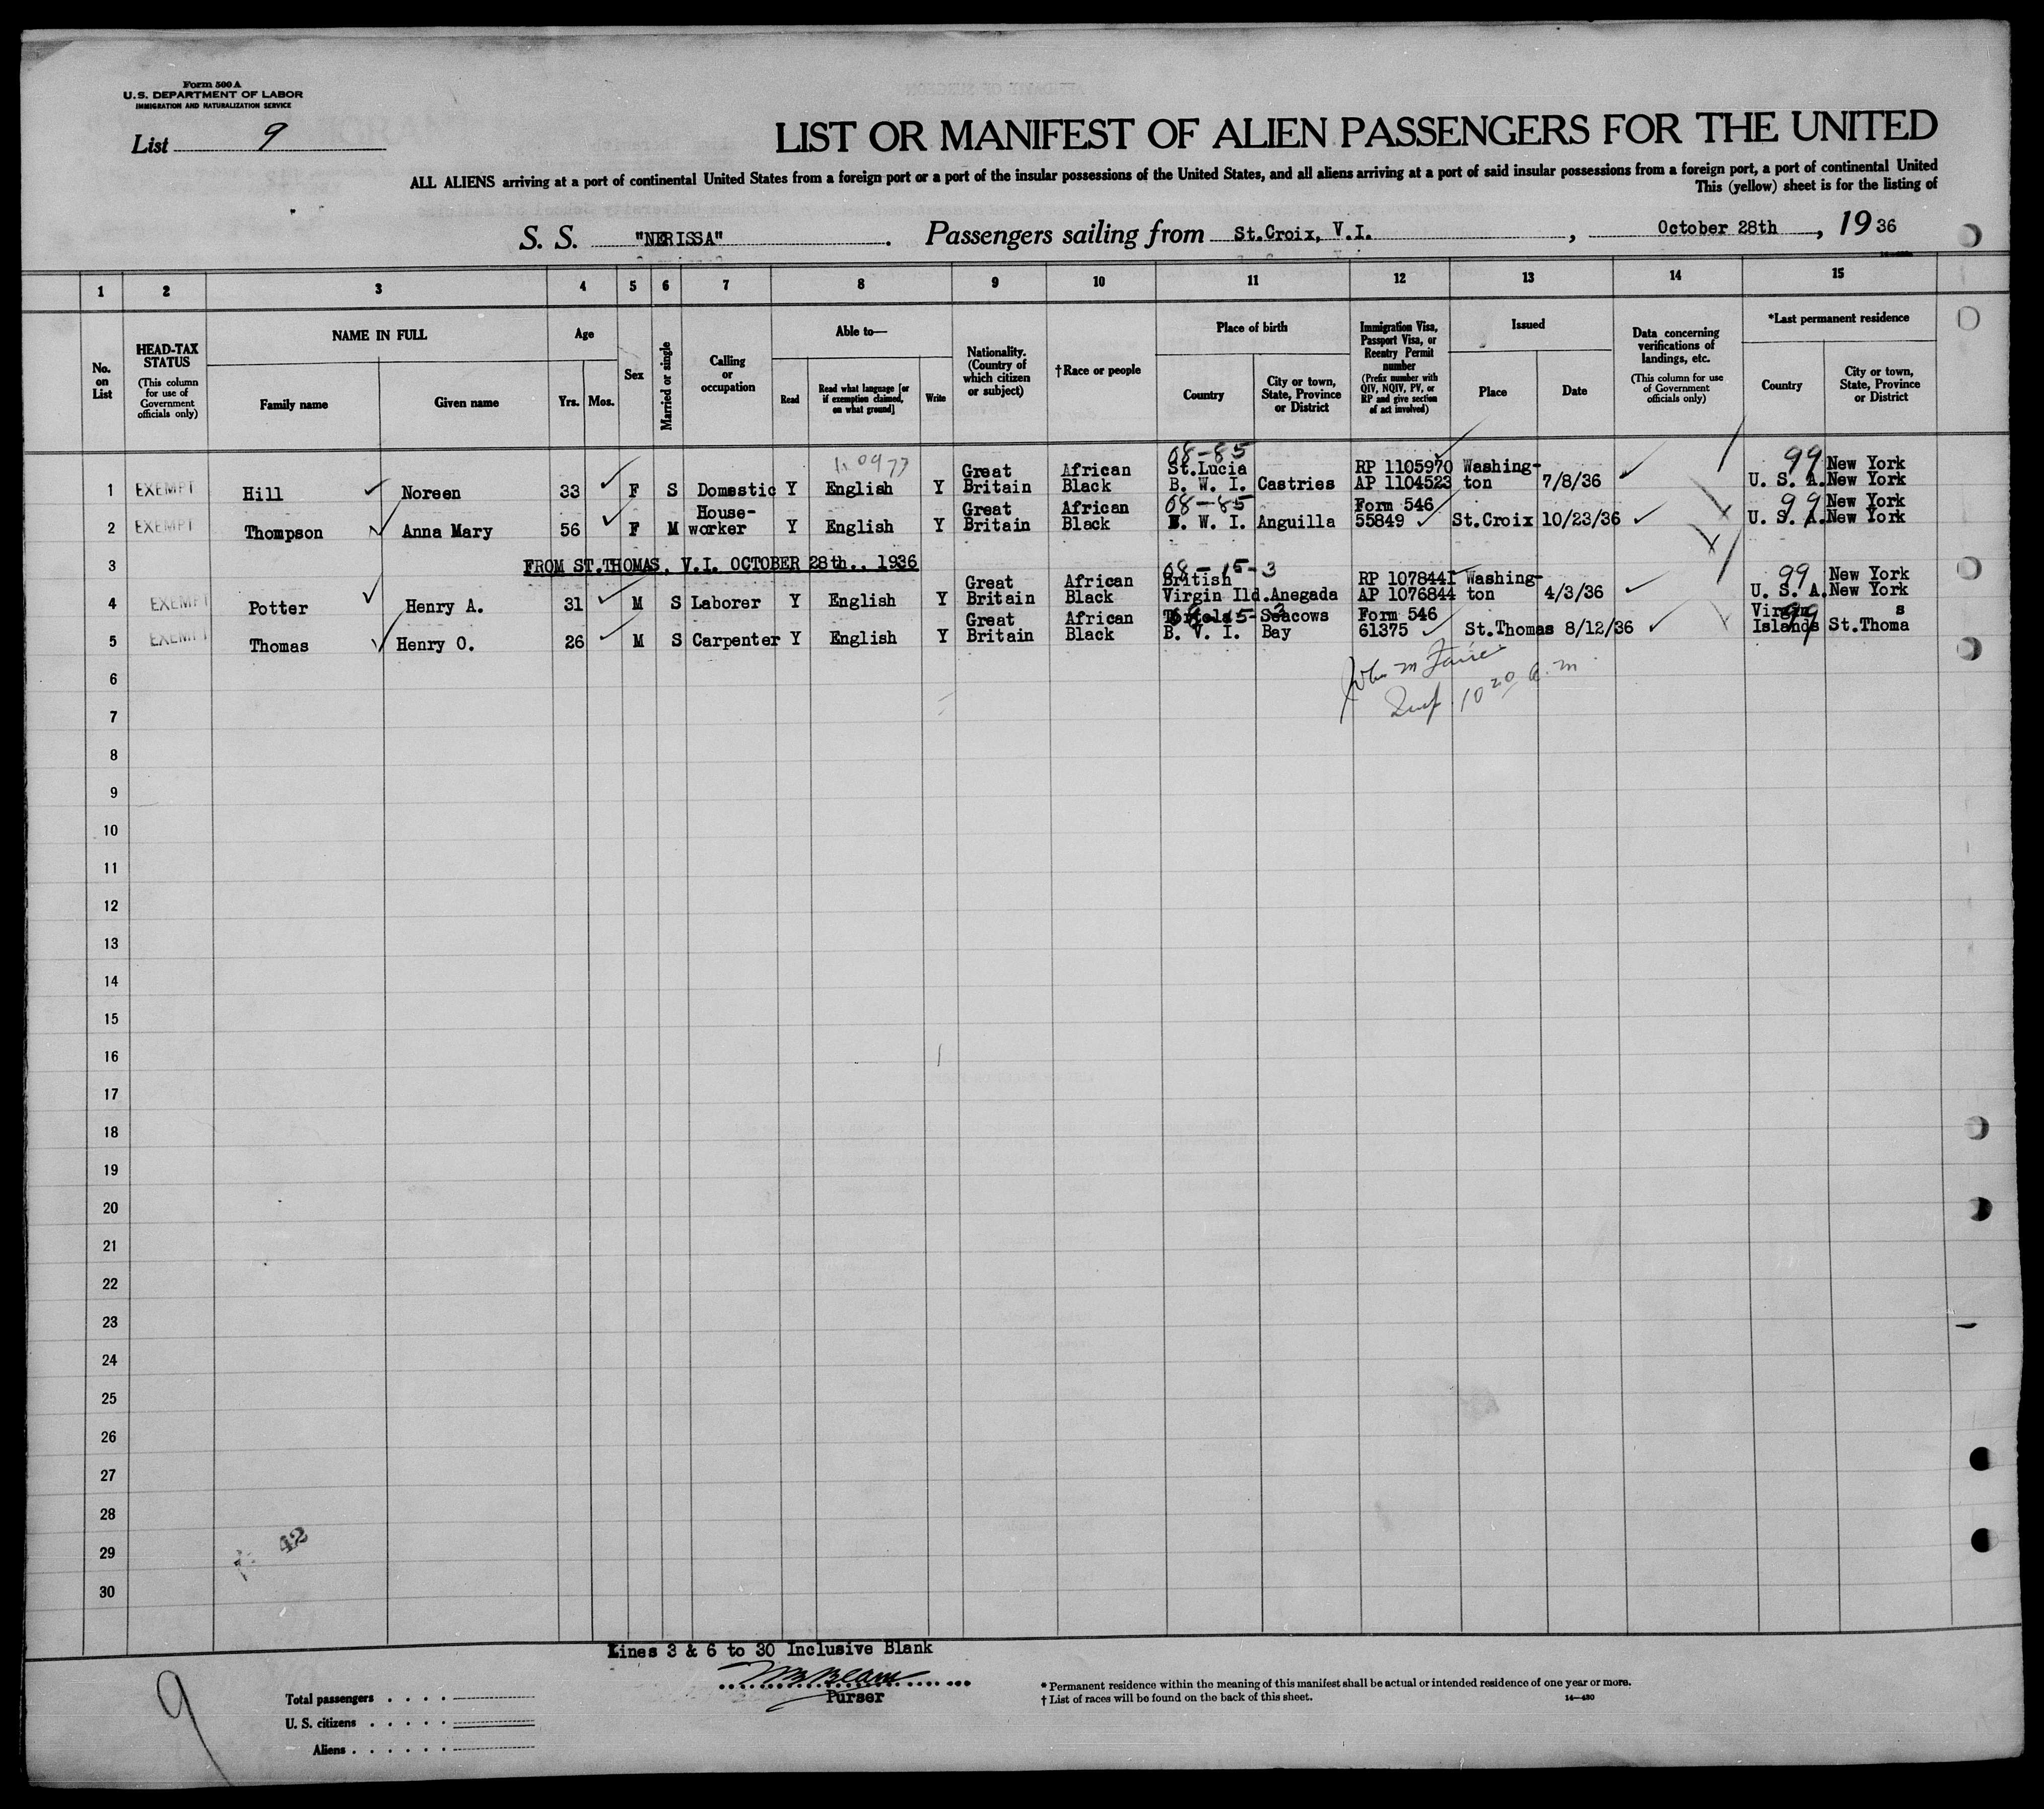 Form 500 A
U.S. DEPARTMENT OF LABOR
IMMIGRATION AND NATURALIZATION SERVICE
List 9
LIST OR MANIFEST OF ALIEN PASSENGERS FOR THE UNITED
ALL ALIENS arriving at a port of continental United States from a foreign port or a port of the insular possessions of the United States, and all aliens arriving at a port of said insular possessions from a foreign port, a port of continental United
This (yellow) sheet is for the listing of
S. S. "NERISSA". Passengers sailing from St.Croix, V.I., October 28th, 1936
1 2 3 4 5 6 7 8 9 10 11 12 13 14 15
No. on List
HEAD-TAX STATUS
(This column for use of Government officials only)
NAME IN FULL
Family name
Given name
Age
Yrs.
Mos.
Sex
Married or single
Calling or occupation
Able to—
Read
Read what language [or if exemption claimed, on what ground]
Write
Nationality. (Country of which citizen or subject)
†Race or people
Place of birth
Country
City or town, State, Province or District
Immigration Visa, Passport Visa, or Reentry Permit number
(Prefix number with QIV, NQIV, PV, or RP and give section of act involved)
Issued
Place
Date
Data concerning verifications of landings, etc.
(This column for use of Government officials only)
*Last permanent residence
Country
City or town, State, Province or District
08-85 99
Great African St.Lucia RP 1105970 Washing- New York
1 EXEMPT Hill Noreen 33 F S Domestic Y English Y Britain Black B. W. I. Castries AP 1104523 ton 7/8/36 U. S. A. New York
House- Great African 08-85 Form 546 99 New York
2 EXEMPT Thompson Anna Mary 56 F M worker Y English Y Britain Black B. W. I. Anguilla 55849 St.Croix 10/23/36 U. S. A. New York
3 FROM ST.THOMAS, V.I. OCTOBER 28th., 1936
08-15-3
Great African British RP 1078441 Washing- 99 New York
4 EXEMPT Potter Henry A. 31 M S Laborer Y English Y Britain Black Virgin Ild. Anegada AP 1076844 ton 4/3/36 U. S. A. New York
Great African Tortola Seacows Form 546 Virgin s
5 EXEMPT Thomas Henry O. 26 M S Carpenter Y English Y Britain Black B. V. I. Bay 61375 St.Thomas 8/12/36 Islands 99 St.Thoma
6
10 20 a. m.
7
8
9
10
11
12
13
14
15
16
17
18
19
20
21
22
23
24
25
26
27
28
42
29
30
Lines 3 & 6 to 30 Inclusive Blank
Purser
9
Total passengers
U. S. citizens
Aliens
* Permanent residence within the meaning of this manifest shall be actual or intended residence of one year or more.
† List of races will be found on the back of this sheet.
14—430